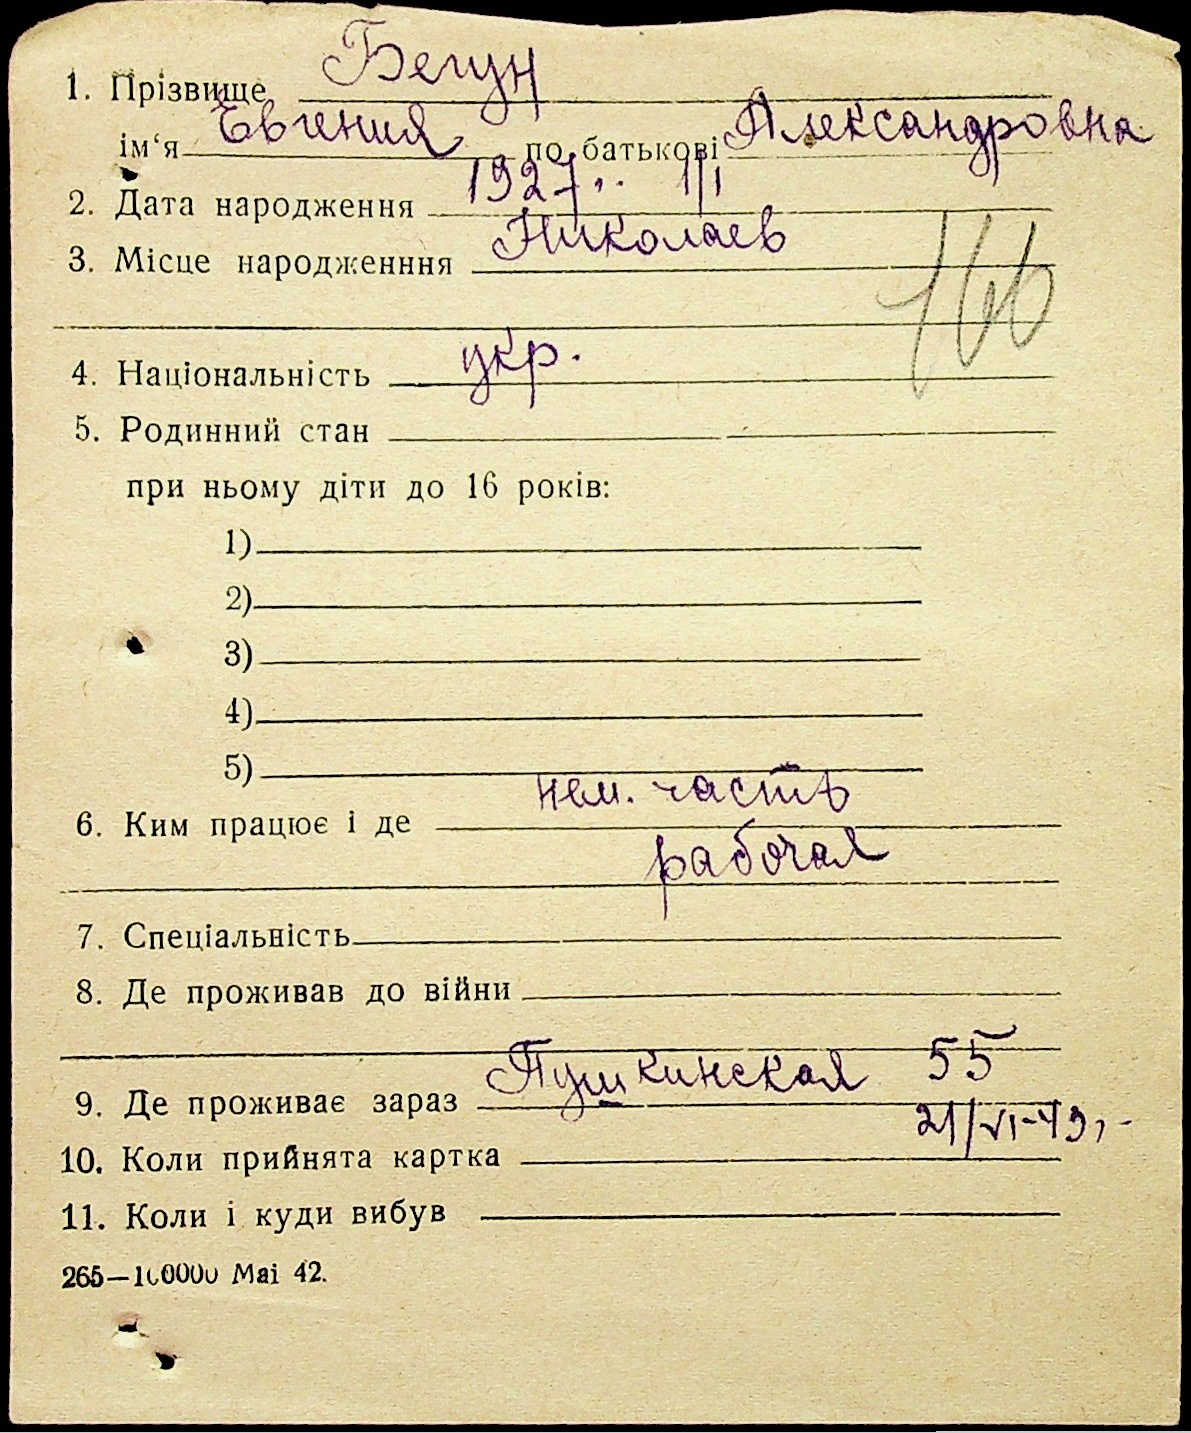 1. Прізвище Бегун
ім‘я Евгения по батькові Александровна
2. Дата народження 1927.. 1/I
3. Місце народженння Николаев
4. Національність укр.
5. Родинний стан
при ньому діти до 16 років:
1)
2)
3)
4)
5)
6. Ким працює і де нем. часть
рабочая
7. Спеціальність
8. Де проживав до війни
9. Де проживає зараз Пушкинская 55
10. Коли прийнята картка 21/VI-43,-
11. Коли і куди вибув
265—100000 Mai 42.